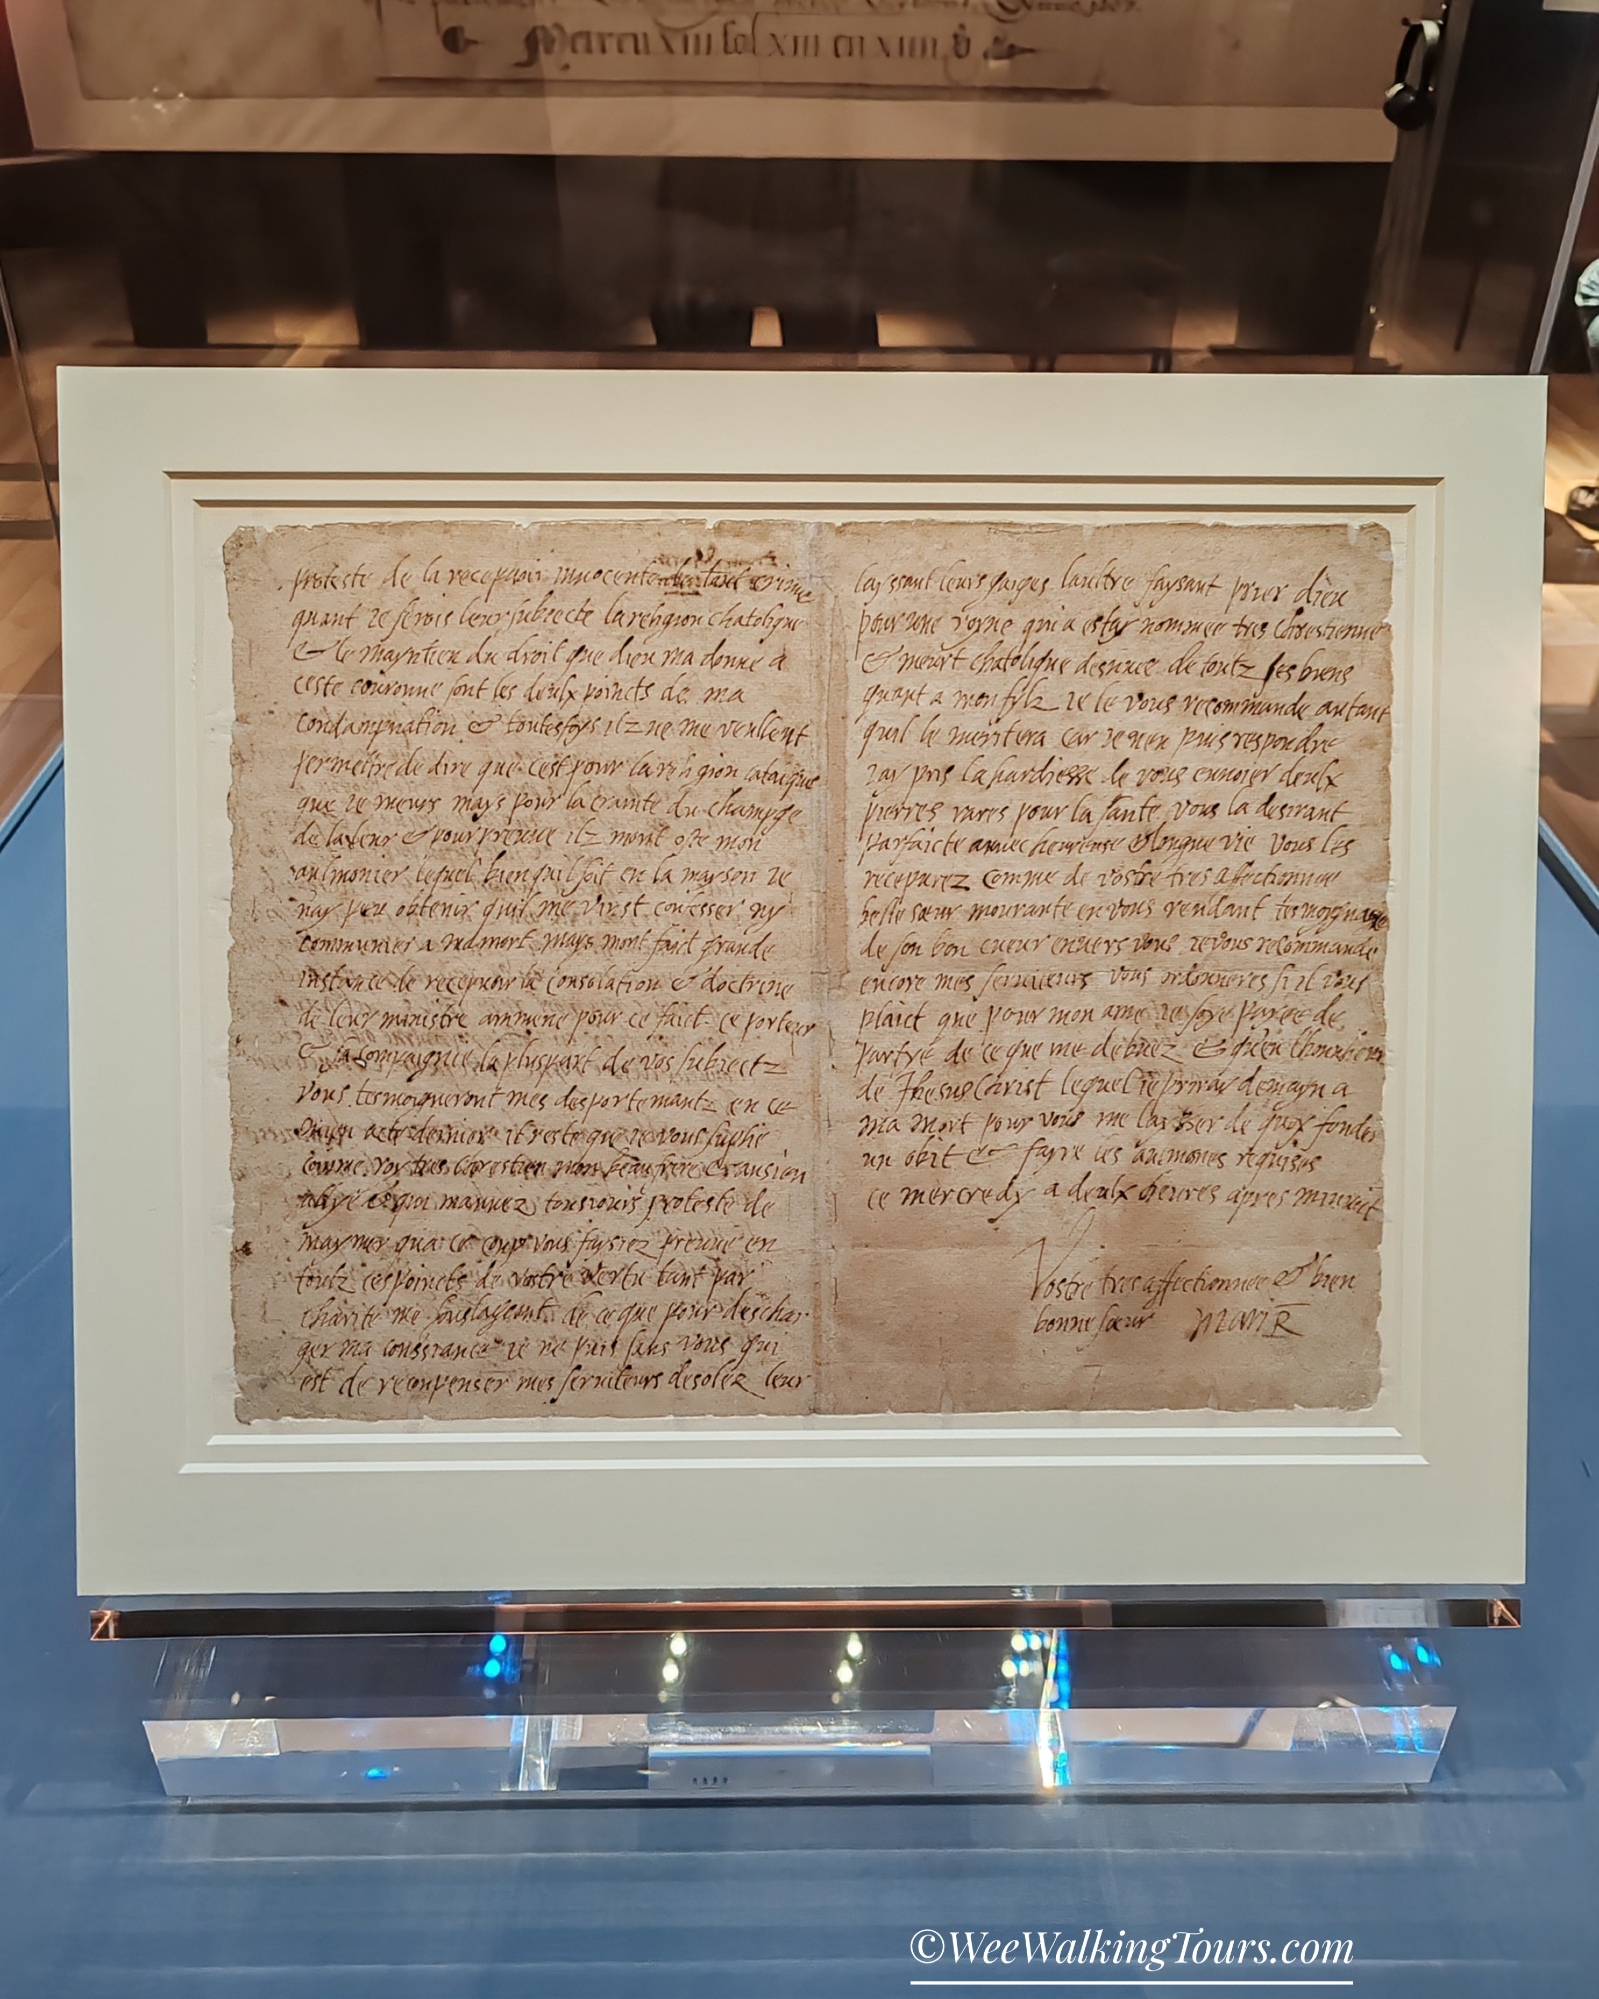 Mercu xiii sol xiii en xiiii
proteste de la recepuoir innocente de tout crime
quant ie serois leur subiecte la religion chatolique
& le mayntien du droit que dieu ma donne a
ceste couronne sont les deulx points de ma
condampnation & toutesfoys ilz ne me veullent
permettre de dire que cest pour la religion catolique
que ie meurs mays pour la crainte du champge
de la leur & pour preuue ilz mont oste mon
aulmonier lequel bien quil soit en la mayson ie
nay peu obtenir quil me vinst confesser ny
communier a ma mort mays mont faict grande
instance de recepuoir la consolation & doctrine
de leur ministre ammene pour ce faict ce porteur
& sa compaignie la pluspart de vos subiectz
vous tesmoigneront mes desportemantz en ce
mien acte dernier il reste que ie vous suplie
comme roy tres chrestien mon beau frere & ansien
allye & qui mauuez tousiours proteste de
maymer qua ce coup vous faysiez preuue en
toutz ces poincts de vostre vertu tant par
charite me soulageant de ce que pour deschar
ger ma conssiance ie ne puis sans vous qui
est de recompenser mes seruiteurs desolez leur
layssant leurs gaiges laultre faysant prier dieu
pour une royne qui a estay nommee tres chrestienne
& meurt chatolique desnuee de toutz ses biens
quant a mon fylz ie le vous recommande autant
quil le meritera car ie nen puis respondre
iay pris la hardiesse de vous enuoier deulx
pierres rares pour la sante vous la desirant
parfaicte auuec heureuse & longue vie vous les
recepurez comme de vostre tres affectionnee
belle sœur mourante en vous rendant tesmoygnage
de son bon cueur enuers vous ie vous recommande
encore mes seruiteurs vous ordonneres si il vous
plaict que pour mon ame ie soye payee de
partye de ce que me debuez & quen lhonneur
de Jhesus Christ lequel ie priray demayn a
ma mort pour vous me laysser de quoy fonder
un obit & fayre les aulmones requises
ce mercredy a deulx heures apres minuict
Vostre tres affectionnee & bien
bonne sœur Mari R
©WeeWalkingTours.com